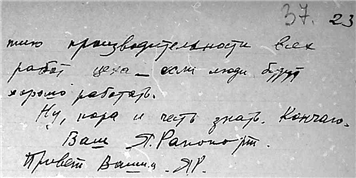 37. 23
тию производительности всех
работ цеха — если люди будут
хорошо работать.
Ну, пора и честь знать. Кончаю.
Ваш Я. Рапопорт.
Привет Вашим. ЯР.